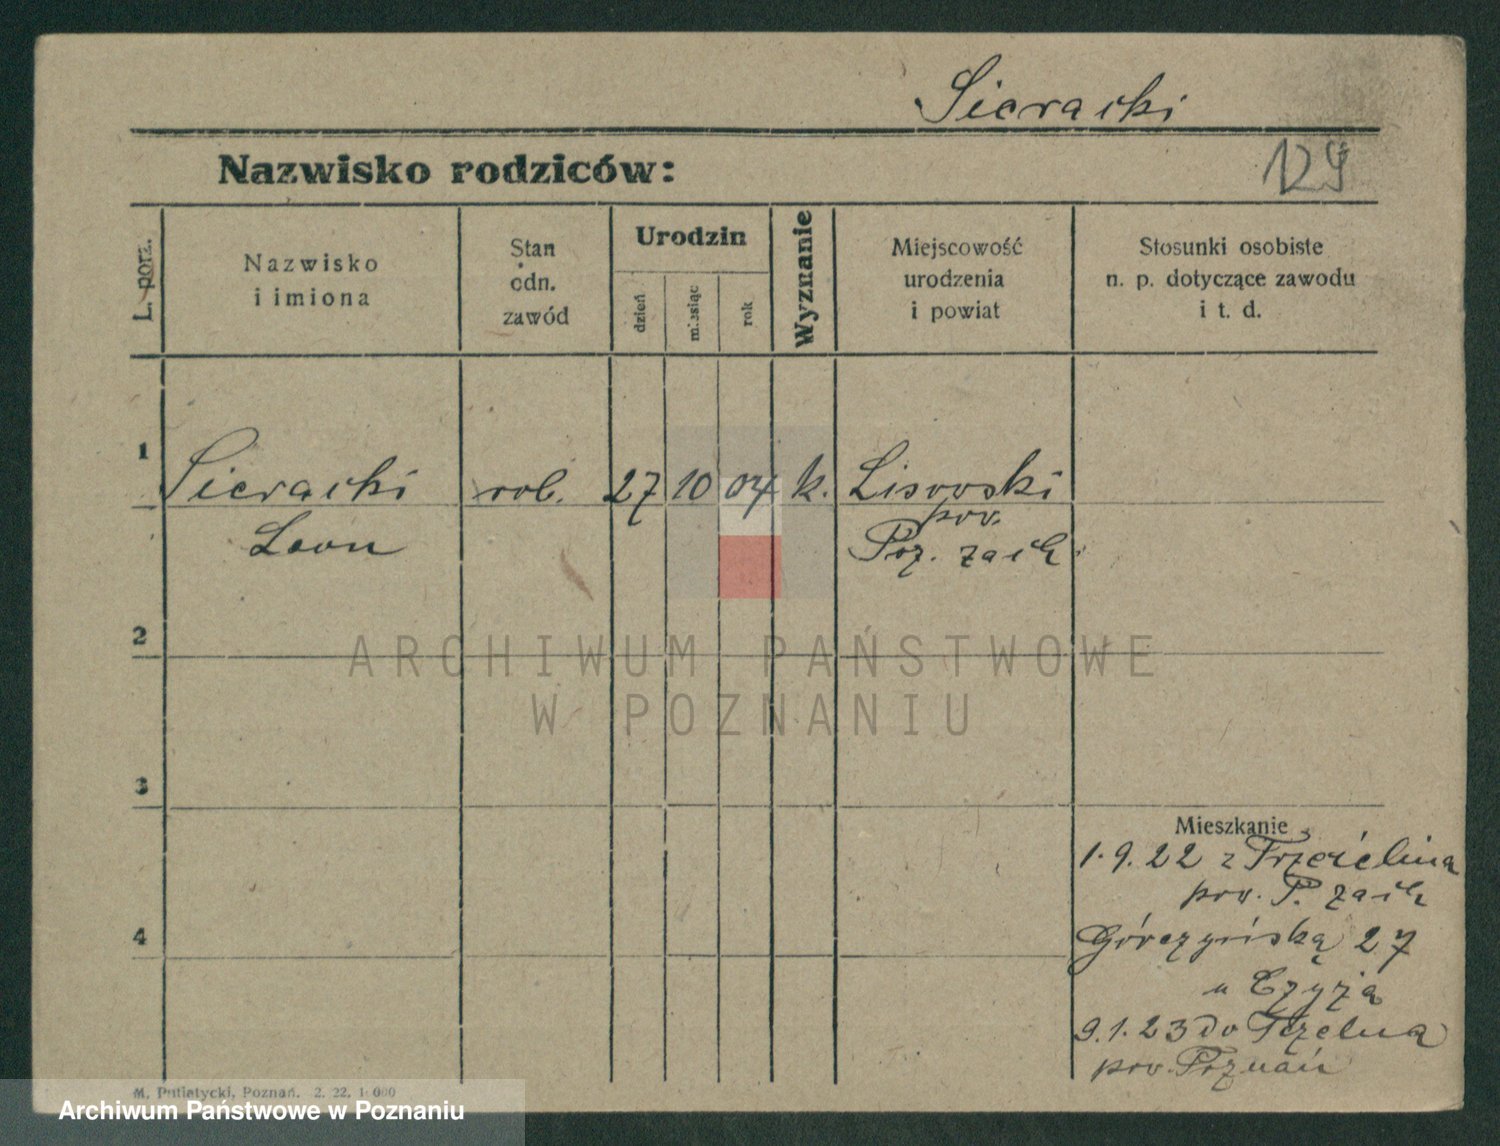 Sieracki
Nazwisko rodziców:
129
L. porz.
Nazwisko
i imiona
Stan
odn.
zawód
Urodzin
dzień
miesiąc
rok
Wyznanie
Miejscowość
urodzenia
i powiat
Stosunki osobiste
n. p. dotyczące zawodu
i t. d.
1
Sieracki rob. 27 10 04 k. Lisowski
pow.
Leon
Poz. zach.
2
ARCHIWUM PAŃSTWOWE
W POZNANIU
3
Mieszkanie
1.9.22 z
pow. P. zach
4
Górczyńską 27
u
9.1.23 do
pow. Poznań
M. Putiatycki, Poznań. 2. 22. 1000
Archiwum Państwowe w Poznaniu